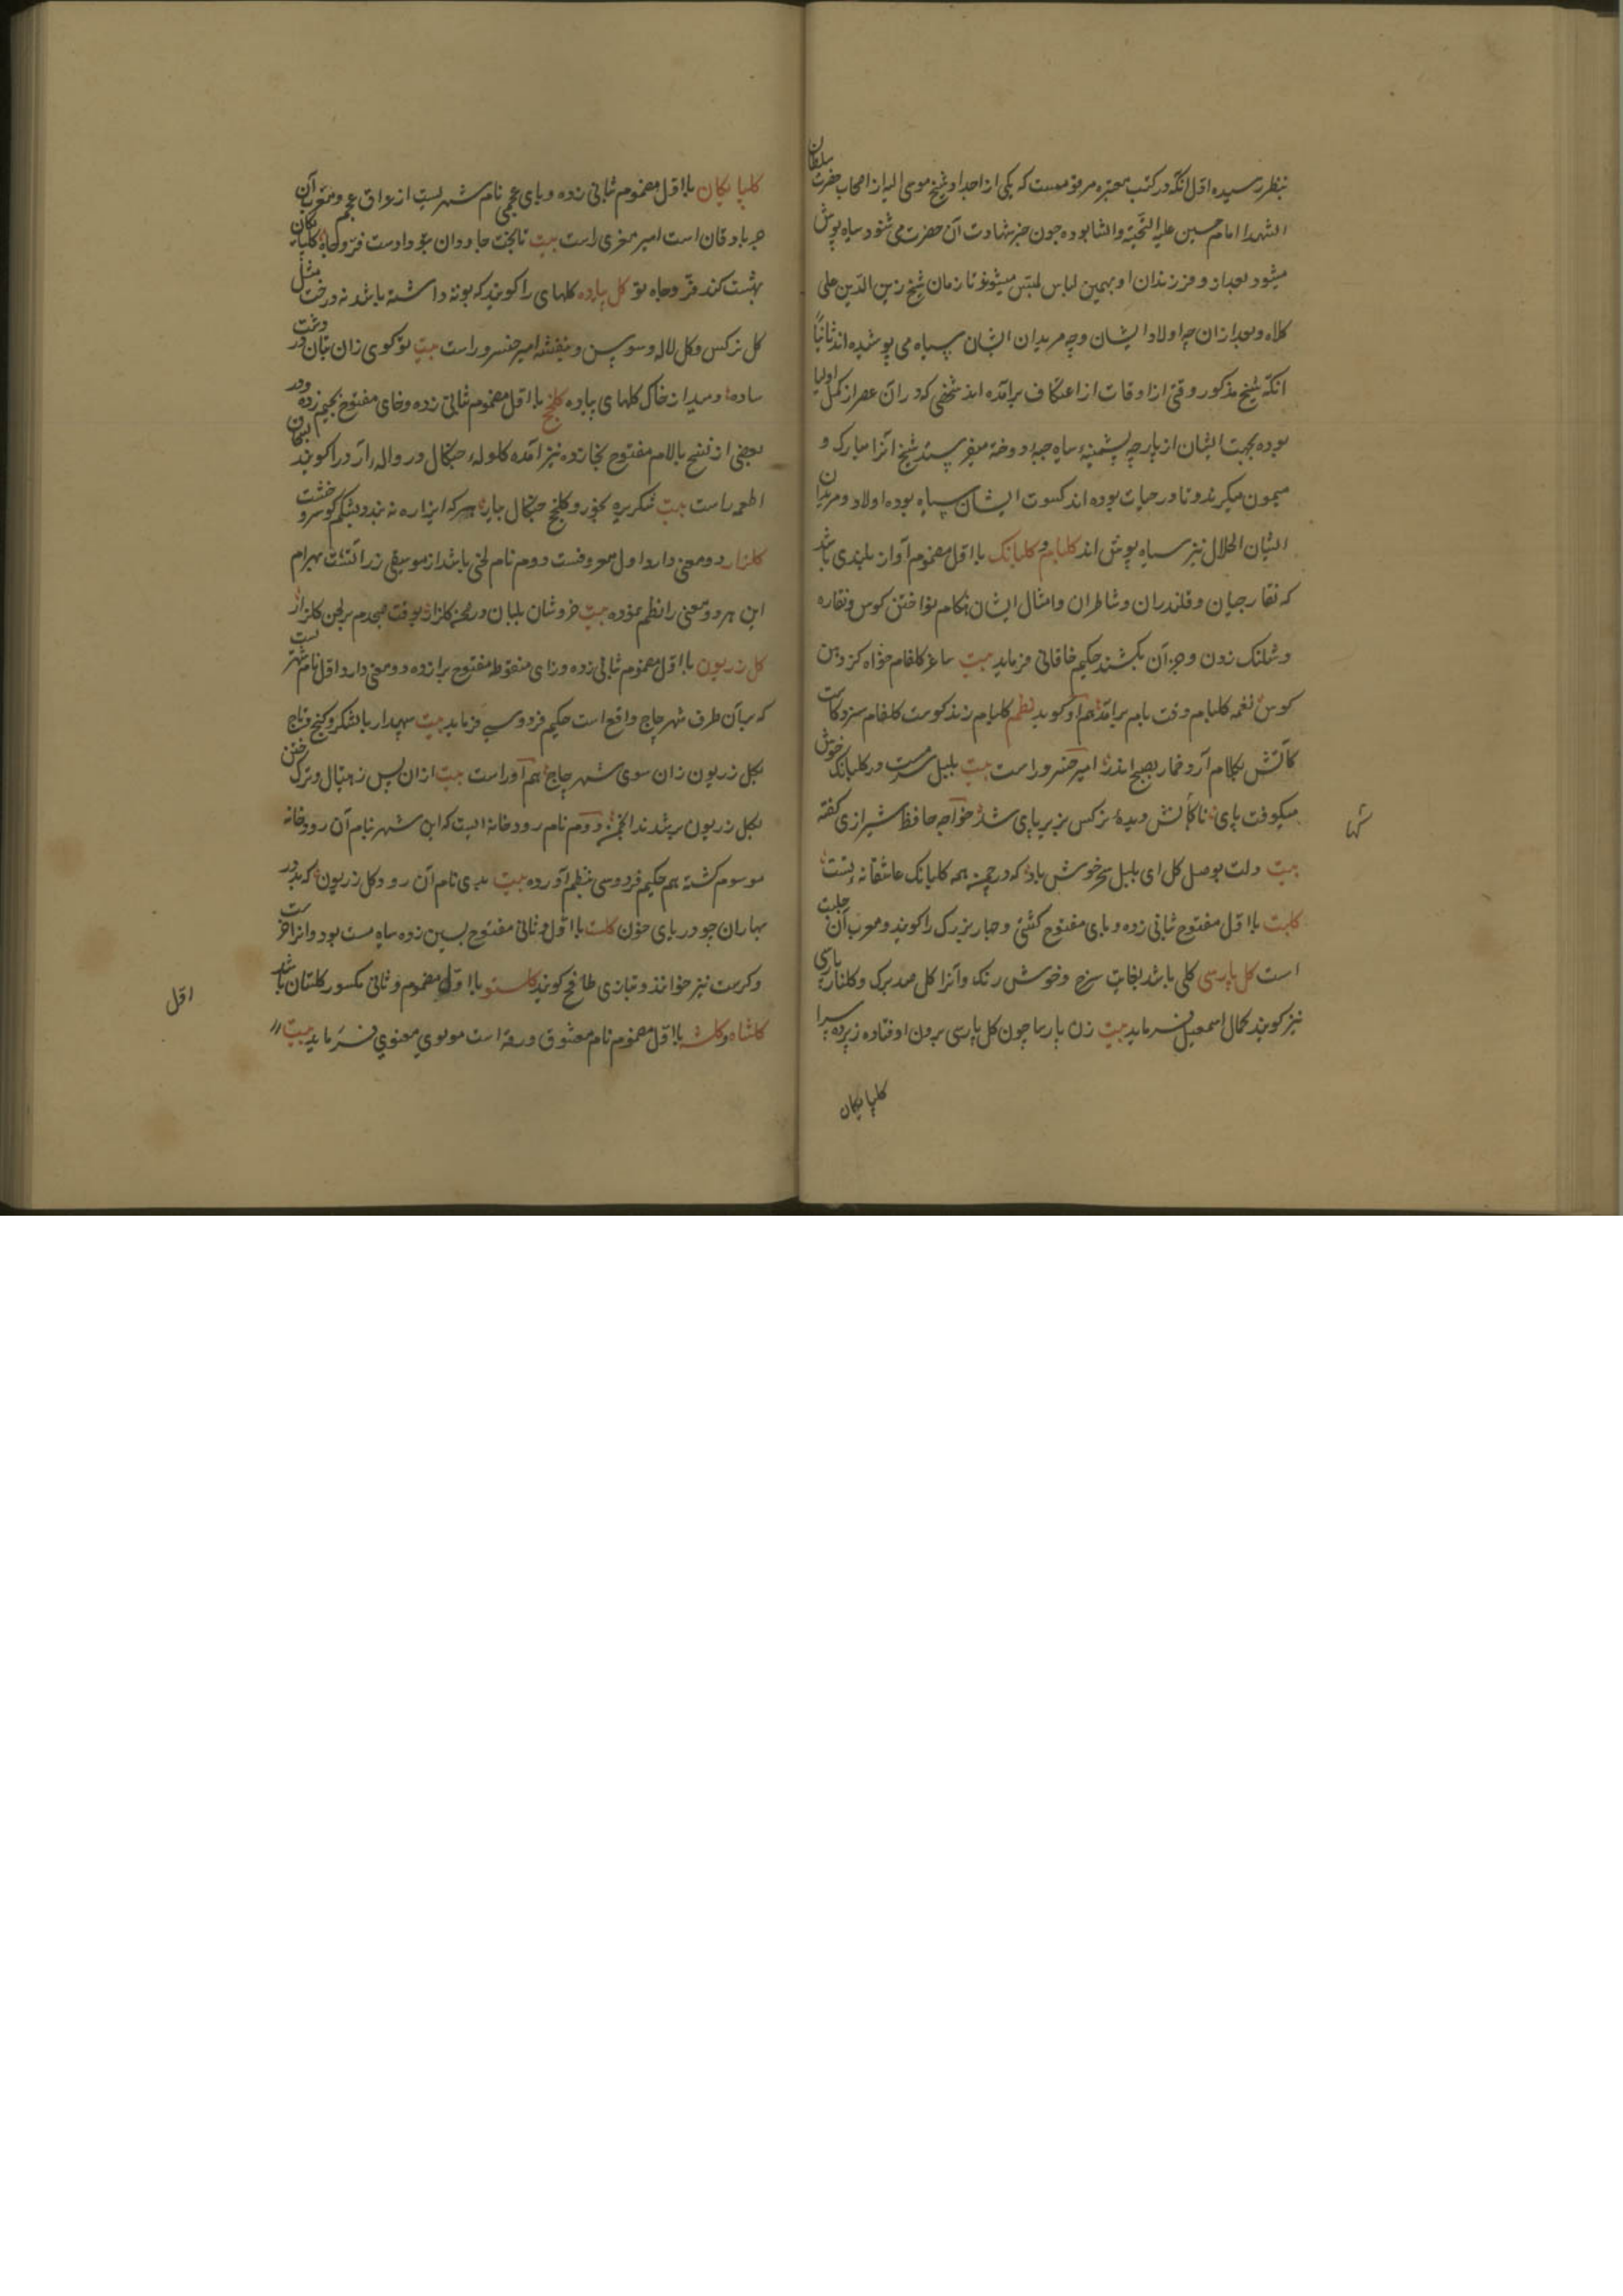 بنظر رسیده اول آنکه در کتب معتبره مرقومست که یکی از اجداد شیخ موسی الیه از اصحاب حضرت سلطان
الشهدا امام حسین علیه التحیة والثنا بوده چون خبر شهادت آن حضرت می شنود سیاه پوش
میشود بعد از و فرزندان او بهمین لباس ملبس میشوند تا زمان شیخ زین الدین علی
کلاه و بعد از ان چه اولاد ایشان و چه مریدان ایشان سیاه می پوشیده اند ثانیاً
آنکه شیخ مذکور وقتی از اوقات از اعتکاف برآمده اند شخصی که در آن عصر از کمل اولیا
بوده بجهت ایشان از پارچه پشمینه سیاه جبه دوخته میفرستد شیخ آنرا مبارک و
میمون میگیرند و تا در حیات بوده اند کسوت ایشان سیاه بوده اولاد و مریدان
ایشان الحلال نیز سیاه پوش اند کلبام و کلبانک با اول مضموم آواز بلندی باشد
که نقارچیان و قلندران و شاطران و امثال ایشان هنکام نواختن کوس و نقاره
و شلنک زدن و جز آن بکشند حکیم خاقانی فرماید بیت ساغر کلفام خواه کز دهن
کوس نغمه کلبام وقت بام برآمد هم او کوید نظم کلبام زند کوست کلفام سزد کاست
کآتش بکلام آرد خمار بصبح اندر امیر خسرو راست بیت بلبل سرمست در کلبانک خوش
میکوفت پای ناکانش دیده نرکس بزیر پای شد خواجه حافظ شیرازی کفته
بیت دلت بوصل کل ای بلبل سحر خوش باد که در چمن همه کلبانک عاشقانه تست
کلبت با اول مفتوح ثانی زده و بای مفتوح کشتی و جهاز بزرک را کویند و معرب آن جلبت
است کل پارسی کلی باشد بغایت سرخ و خوش رنک و آنرا کل صد برک و کلنار پارسی
نیز کویند کمال اسمعیل فرماید بیت زن پارسا چون کل پارسی برون اوفتاده ز پرده سرا
کلپایکان
کلپایکان با اول مضموم ثانی زده و بای عجمی نام شهریست از عراق عجم و معرب آن
جرباد قان است امیر معزی راست بیت تا بخت جاودان بتو دادست فر و جاه کلپایکان
بهشت کند فر و جاه تو کل پیاده کلهای را کویند که بوته داشته باشد نه درخت مثل
کل نرکس و کل لاله و سوسن و بنفشه امیر خسرو راست بیت تو کوی زان بتان در دشت
ساده دمید از خاک کلهای پیاده کلخج با اول مضموم ثانی زده و خای مفتوح بجیم زده و در
بعضی از نسخ بالام مفتوح بخا زده نیز آمده کلوله چنکال و رواله آرد را کویند
اطعمه راست بیت شکر بره بخور و کلخج چنکال بیار هر که این اره نه بندد بشکم کو سر و خشت
کلزار دو معنی دارد اول معروفست دوم نام لحنی باشد از موسیقی زراتشت بهرام
این هر دو معنی را نظم نموده بیت خروشان بلبان در صحن کلزار بوقت صبحدم بر لحن کلزار
کل زریون با اول مضموم ثانی زده و زای منقوط مفتوح برا زده دو معنی دارد اول نام شهریست
که بدان طرف شهر چاچ واقع است حکیم فردوسی فرماید بیت سپهدار با لشکر و کنج و تاج
بکل زریون زان سوی شهر چاچ هم او راست بیت ازان پس ز هیتال و ترک ختن
بکل زریون بر شدند انجمن دوم نام رودخانه ایست که این شهر بنام آن رودخانه
موسوم کشته هم حکیم فردوسی بنظم آورده بیت بدی نام آن رود کل زریون که بد در
بهاران چو دریای خون کلست با اول و ثانی مفتوح بسین زده سیاه مست بود و انرا خرست
و کرست نیز خوانند و بتازی طافح کویند کلستو با اول مضموم و ثانی مکسور کلستان باشد
کلشاه و کلشه با اول مضموم نام معشوق ورقه است مولوی معنوی فرماید بیت
اول